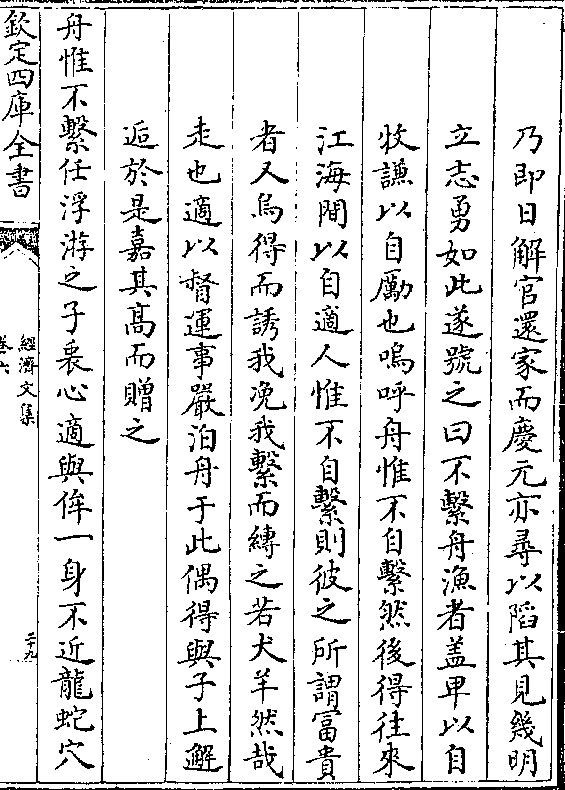 乃即日解官還家而慶元亦尋以陷其見幾明
立志勇如此遂號之曰不繫舟漁者盖甲以自
牧謙以自勵也嗚呼舟惟不自繫然後得往來
江海間以自適人惟不自繫則彼之所謂富貴
者又烏得而誘我浼我繫而縛之若犬羊然哉
走也適以督運事嚴泊舟于此偶得與子上解
逅於是嘉其髙而贈之
舟惟不繫任浮游之子衷心適與侔一身不近龍蛇穴
欽定四庫全書
經濟文集
卷六
二九